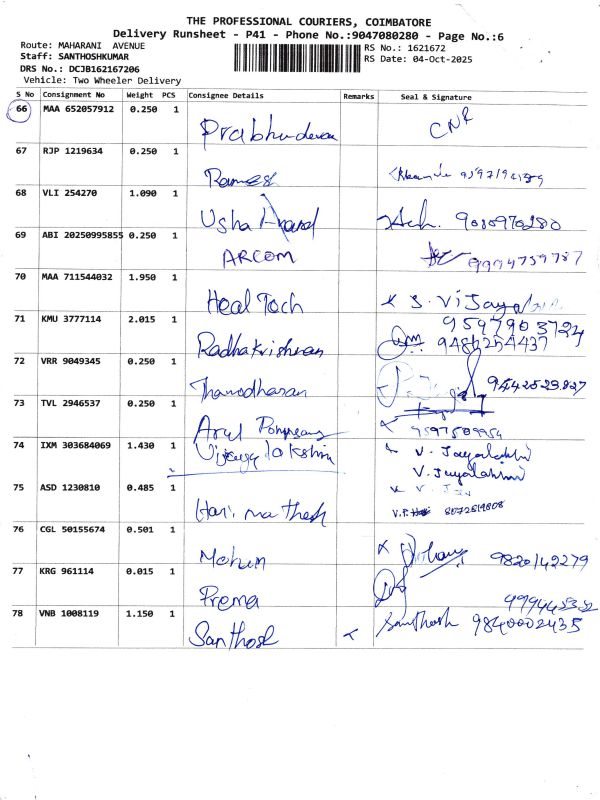 THE PROFESSIONAL COURIERS, COIMBATORE
Delivery Runsheet - P41 - Phone No.:9047080280 - Page No.:6
Route: MAHARANI AVENUE
RS No.: 1621672
Staff: SANTHOSHKUMAR
RS Date: 04-Oct-2025
DRS No.: DCJB162167206
Vehicle: Two Wheeler Delivery
S No Consignment No Weight PCS Consignee Details Remarks Seal & Signature
66 MAA 652057912 0.250 1
Prabhudevan CNR
67 RJP 1219634 0.250 1
Ramesh
68 VLI 254270 1.090 1
Usha Anand 9080970280
69 ABI 20250995855 0.250 1
ARCOM 9994759787
70 MAA 711544032 1.950 1
Heal Tech S. Vijaya
71 KMU 3777114 2.015 1 9597903724
Radhakrishnan 9486254437
72 VRR 9049345 0.250 1
Thamodharan 9442523827
73 TVL 2946537 0.250 1
Arul 9597509954
74 IXM 303684069 1.430 1 V. Jayalakhmi
Vijayalakshmi V. Jayalakhmi
75 ASD 1230810 0.485 1
Hari mathesh V.P. 8072519808
76 CGL 50155674 0.501 1
Mohan 9820142279
77 KRG 961114 0.015 1
Prema
78 VNB 1008119 1.150 1
Santhosh Santhosh 9840002435